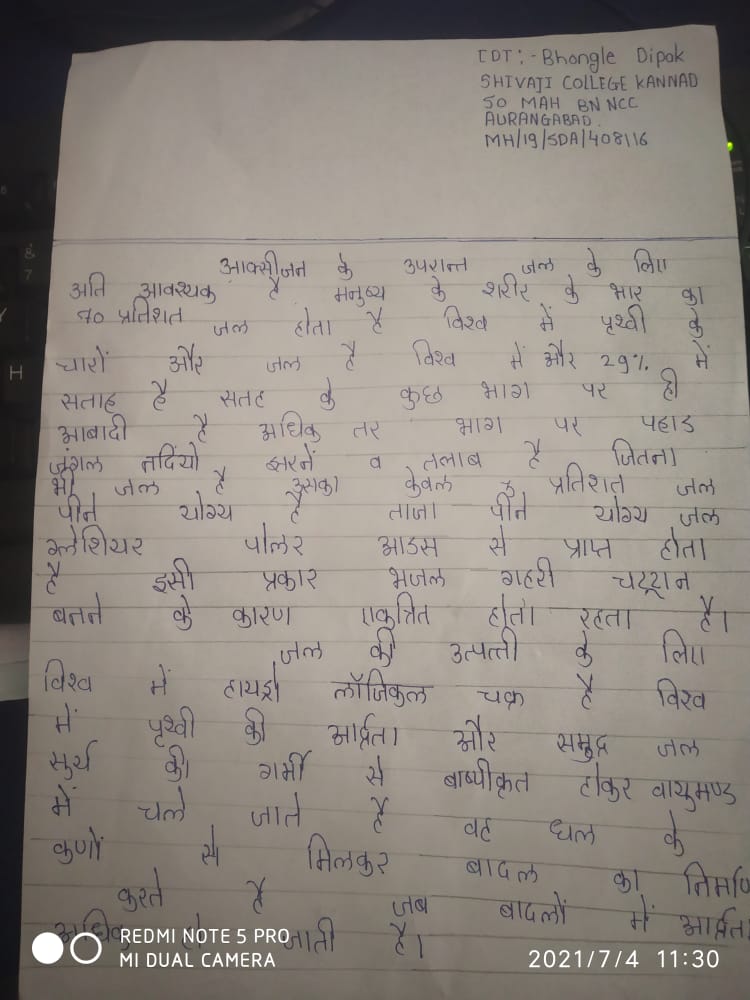 CDT:- Bhongle Dipak
SHIVAJI COLLEGE KANNAD
50 MAH BN NCC
AURANGABAD.
MH/19/SDA/408116
आक्सीजन के उपरान्त जल के लिए
अति आवश्यक है मनुष्य के शरीर के भार का
70 प्रतिशत जल होता है विश्व में पृथ्वी के
चारों और जल है विश्व में और 29% में
सताह है सतह के कुछ भाग पर ही
आबादी है अधिक तर भाग पर पहाड
जंगल नदियो झरनें व तलाब है जितना
भी जल है उसका केवल 3 प्रतिशत जल
पीने योग्य है ताजा पीने योग्य जल
ग्लेशियर पोलर आइस से प्राप्त होता
है इसी प्रकार भजल गहरी चट्टान
बनने के कारण एकत्रित होता रहता है।
जल की उत्पत्ती के लिए
विश्व में हायड्रो लॉजिकल चक्र है विश्व
में पृथ्वी की आर्द्रता और समुद्र जल
सुर्य की गर्मी से बाष्पीकृत होकर वायुमण्ड
में चले जाते है वह धल के
कणों से मिलकर बादल का निर्माण
करते है जब बादलों में आर्द्रता
अधिक हो जाती है।
REDMI NOTE 5 PRO
MI DUAL CAMERA
2021/7/4 11:30
8
7
H